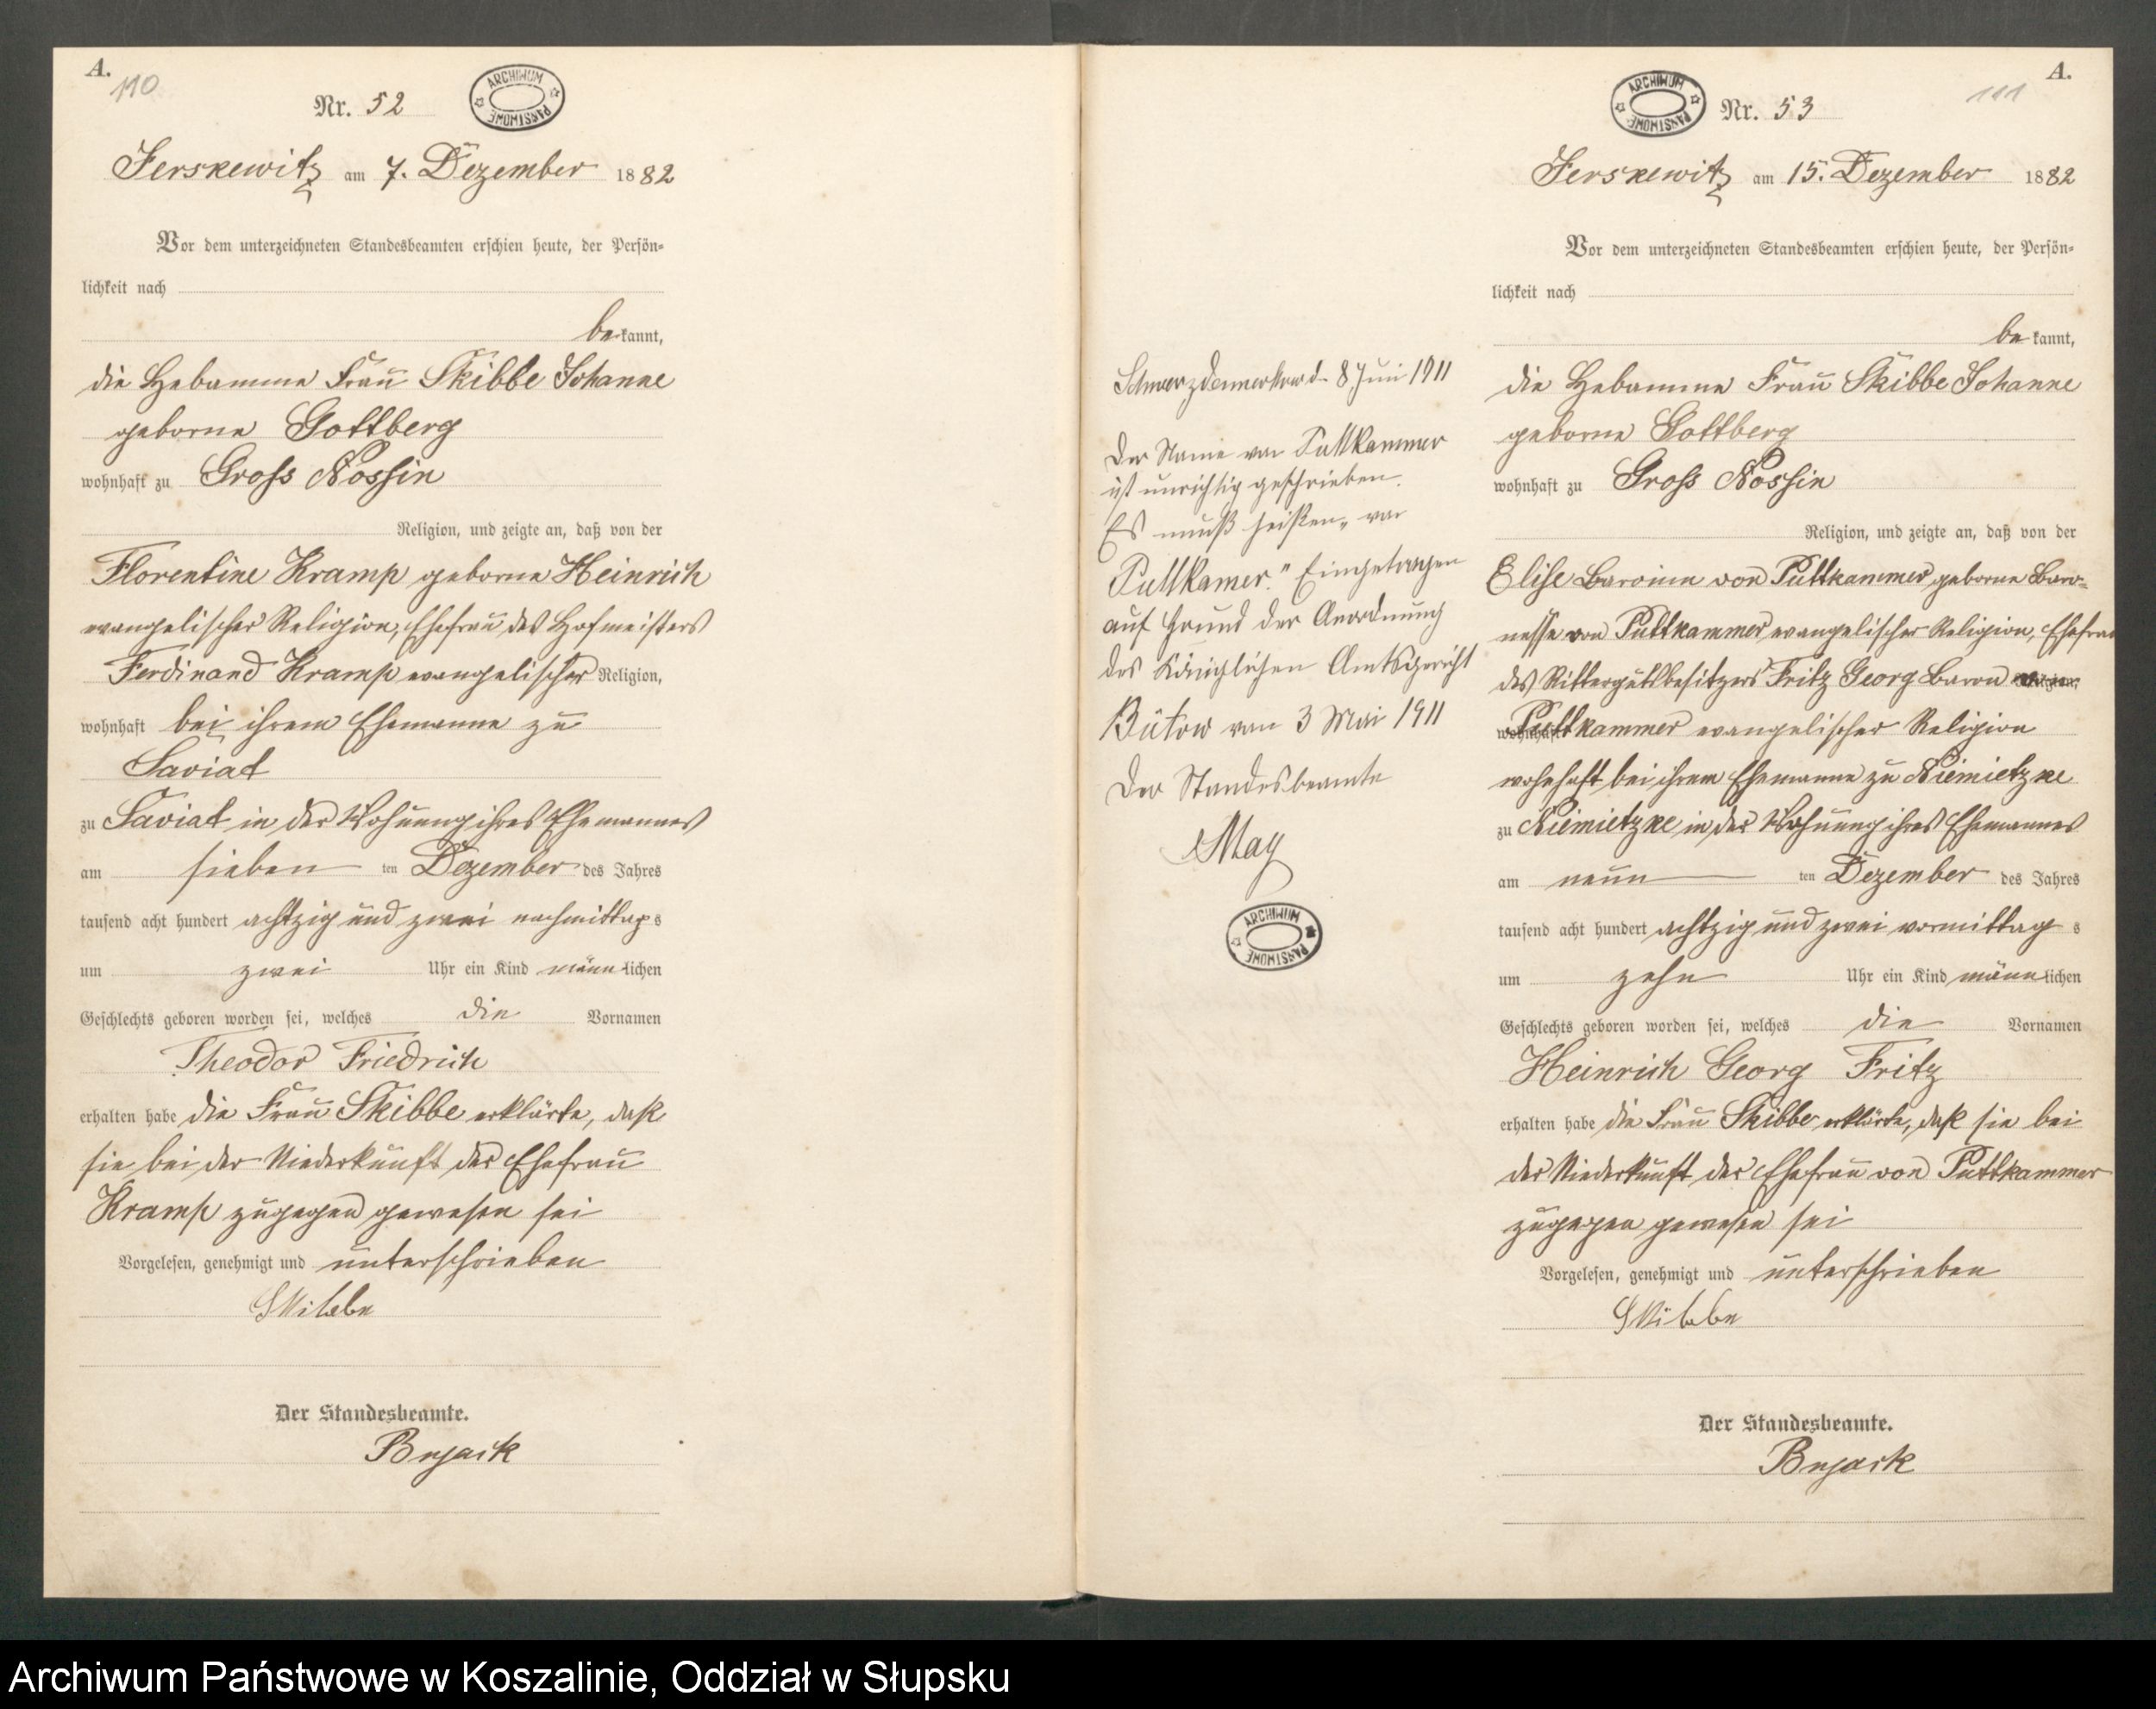 A.
110
Nr. 52
ARCHIWUM PAŃSTWOWE
Jerskewitz am 7. Dezember 1882
Vor dem unterzeichneten Standesbeamten erschien heute, der Persön-
lichkeit nach
be kannt,
die Hebamme Frau Skibbe Johanne
geborne Gottberg
wohnhaft zu Gross Nossin
Religion, und zeigte an, daß von der
Florentine Kramp geborne Heinrich
evangelischer Religion, Ehefrau des Hofmeisters
Ferdinand Kramp evangelischer Religion,
wohnhaft bei ihrem Ehemanne zu
Saviat
zu Saviat in der Wohnung ihres Ehemannes
am sieben ten Dezember des Jahres
tausend acht hundert achtzig und zwei nachmittag s
um zwei Uhr ein Kind männ lichen
Geschlechts geboren worden sei, welches die Vornamen
Theodor Friedrich
erhalten habe die Frau Skibbe erklärte, daß
sie bei der Niederkunft der Ehefrau
Kramp zugegen gewesen sei
Vorgelesen, genehmigt und unterschrieben
Skibbe
Der Standesbeamte.
Bujack
Der Name von Puttkammer
ist unrichtig geschrieben.
Es muß heißen „von
Puttkamer." Eingetragen
auf Grund der Anordnung
des Königlichen Amtsgericht
Bütow vom 3 Mai 1911
Der Standesbeamte
May
ARCHIWUM PAŃSTWOWE
A.
111
ARCHIWUM PAŃSTWOWE
Nr. 53
Jerskewitz am 15. Dezember 1882
Vor dem unterzeichneten Standesbeamten erschien heute, der Persön-
lichkeit nach
be kannt,
die Hebamme Frau Skibbe Johanne
geborne Gottberg
wohnhaft zu Gross Nossin
Religion, und zeigte an, daß von der
Elise Baronin von Puttkammer geborne Baro-
nesse von Puttkammer evangelischer Religion, Ehefrau
des Rittergutsbesitzers Fritz Georg Baron von
Puttkammer evangelischer Religion
wohnhaft bei ihrem Ehemanne zu Niemietzke
zu Niemietzke in der Wohnung ihres Ehemannes
am neun ten Dezember des Jahres
tausend acht hundert achtzig und zwei vormittag s
um zehn Uhr ein Kind männ lichen
Geschlechts geboren worden sei, welches die Vornamen
Heinrich Georg Fritz
erhalten habe die Frau Skibbe erklärte, daß sie bei
der Niederkunft der Ehefrau von Puttkammer
zugegen gewesen sei
Vorgelesen, genehmigt und unterschrieben
Skibbe
Der Standesbeamte.
Bujack
Archiwum Państwowe w Koszalinie, Oddział w Słupsku